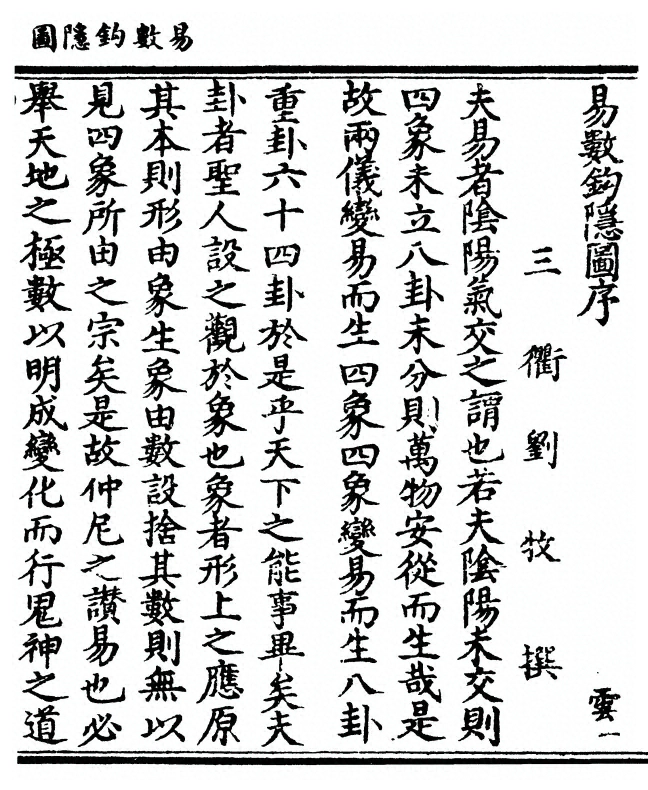 易數鈎隱圖
易數鈎隱圖序
雲一
三衢劉牧撰
夫易者陰陽氣交之謂也若夫陰陽未交則
四象未立八卦未分則萬物安從而生哉是
故兩儀變易而生四象四象變易而生八卦
重卦六十四卦於是乎天下之能事畢矣夫
卦者聖人設之觀於象也象者形上之應原
其本則形由象生象由數設捨其數則無以
見四象所由之宗矣是故仲尼之讚易也必
舉天地之極數以明成變化而行鬼神之道